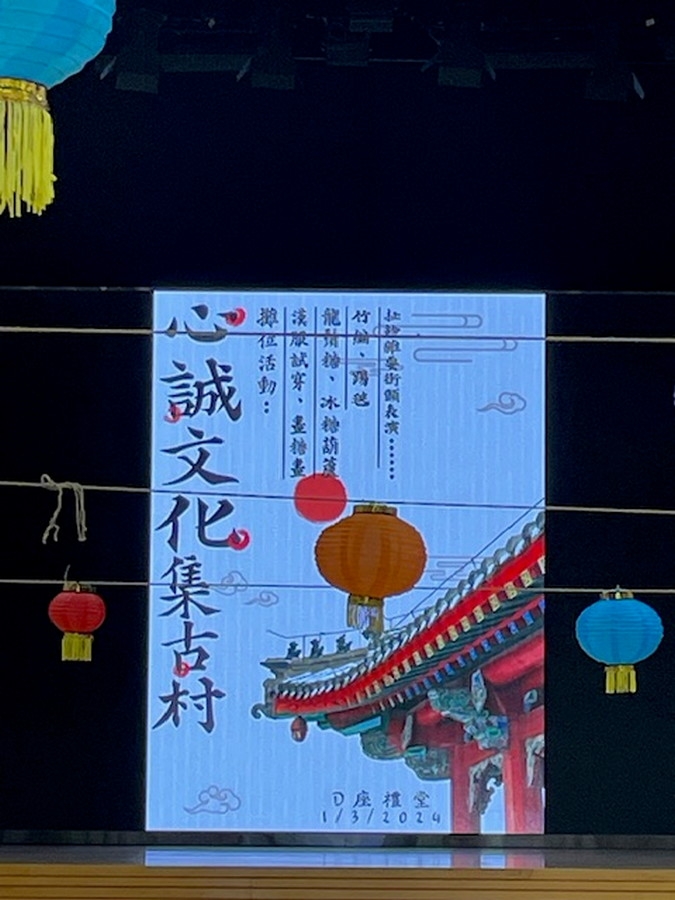 心誠文化集古村
攤位活動：
漢服試穿、畫糖畫
龍鬚糖、冰糖葫蘆
竹編、踢毽
扯鈴雜耍街頭表演……
D座禮堂
1/3/2024